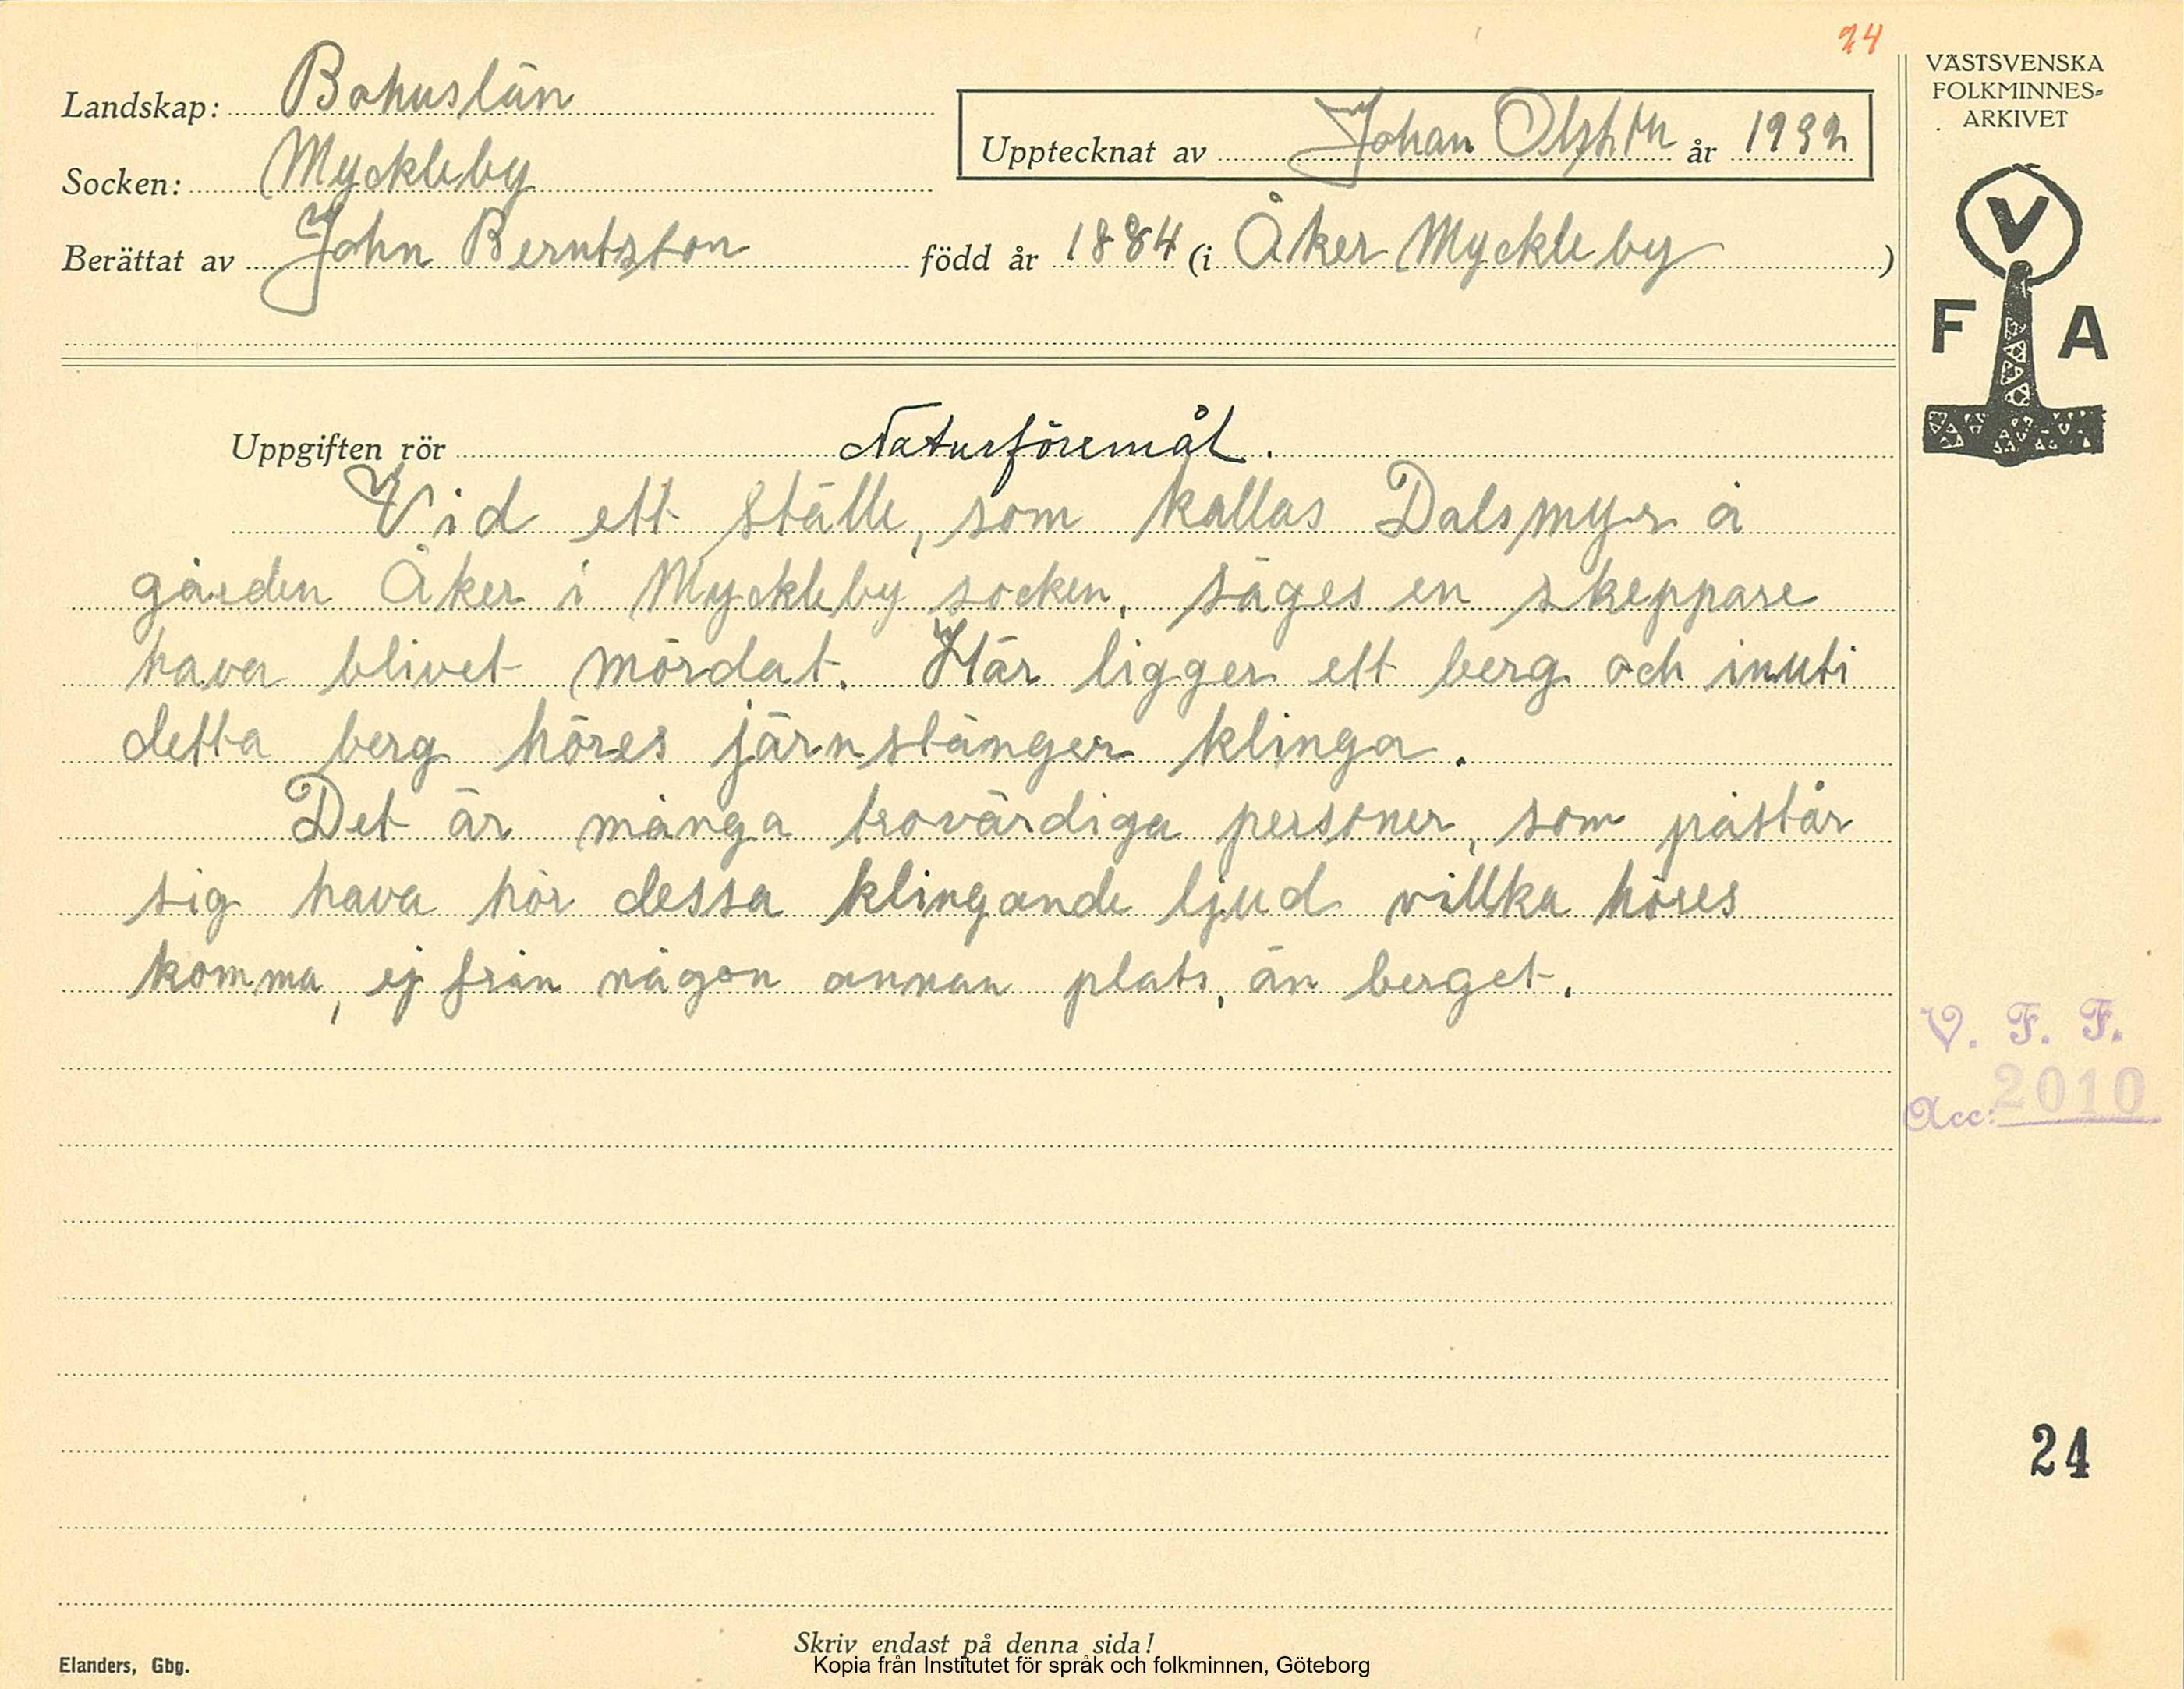 24
VÄSTSVENSKA
FOLKMINNES-
ARKIVET
Landskap: Bohuslän
Upptecknat av Johan år 1932
Socken: Myckleby
Berättat av John Berntsson född år 1884 (i Åker Myckleby)
V
F A
Uppgiften rör Naturföremål.
Vid ett ställe, som kallas Dalsmyr å
gården Åker i Myckleby socken, säges en skeppare
hava blivet mördat. Här ligger ett berg och inuti
detta berg höres järnstänger klinga.
Det är många trovärdiga personer, som påstår
sig hava hör dessa klingande ljud villka höres
komma, ej från någon annan plats, än berget.
V. F. F.
Acc: 2010
24
Skriv endast på denna sida!
Elanders, Gbg.
Kopia från Institutet för språk och folkminnen, Göteborg